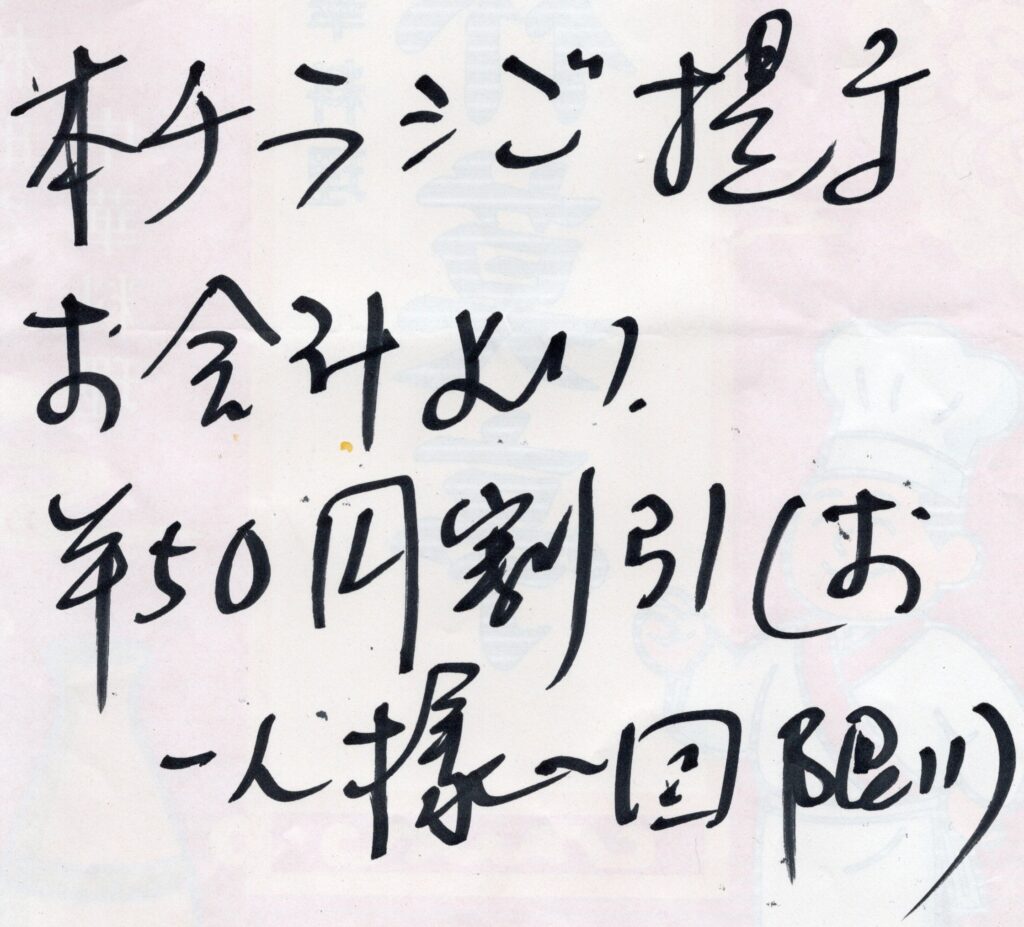 本チラシご提示
お会計より
¥50円割引(お
一人様一回限り)